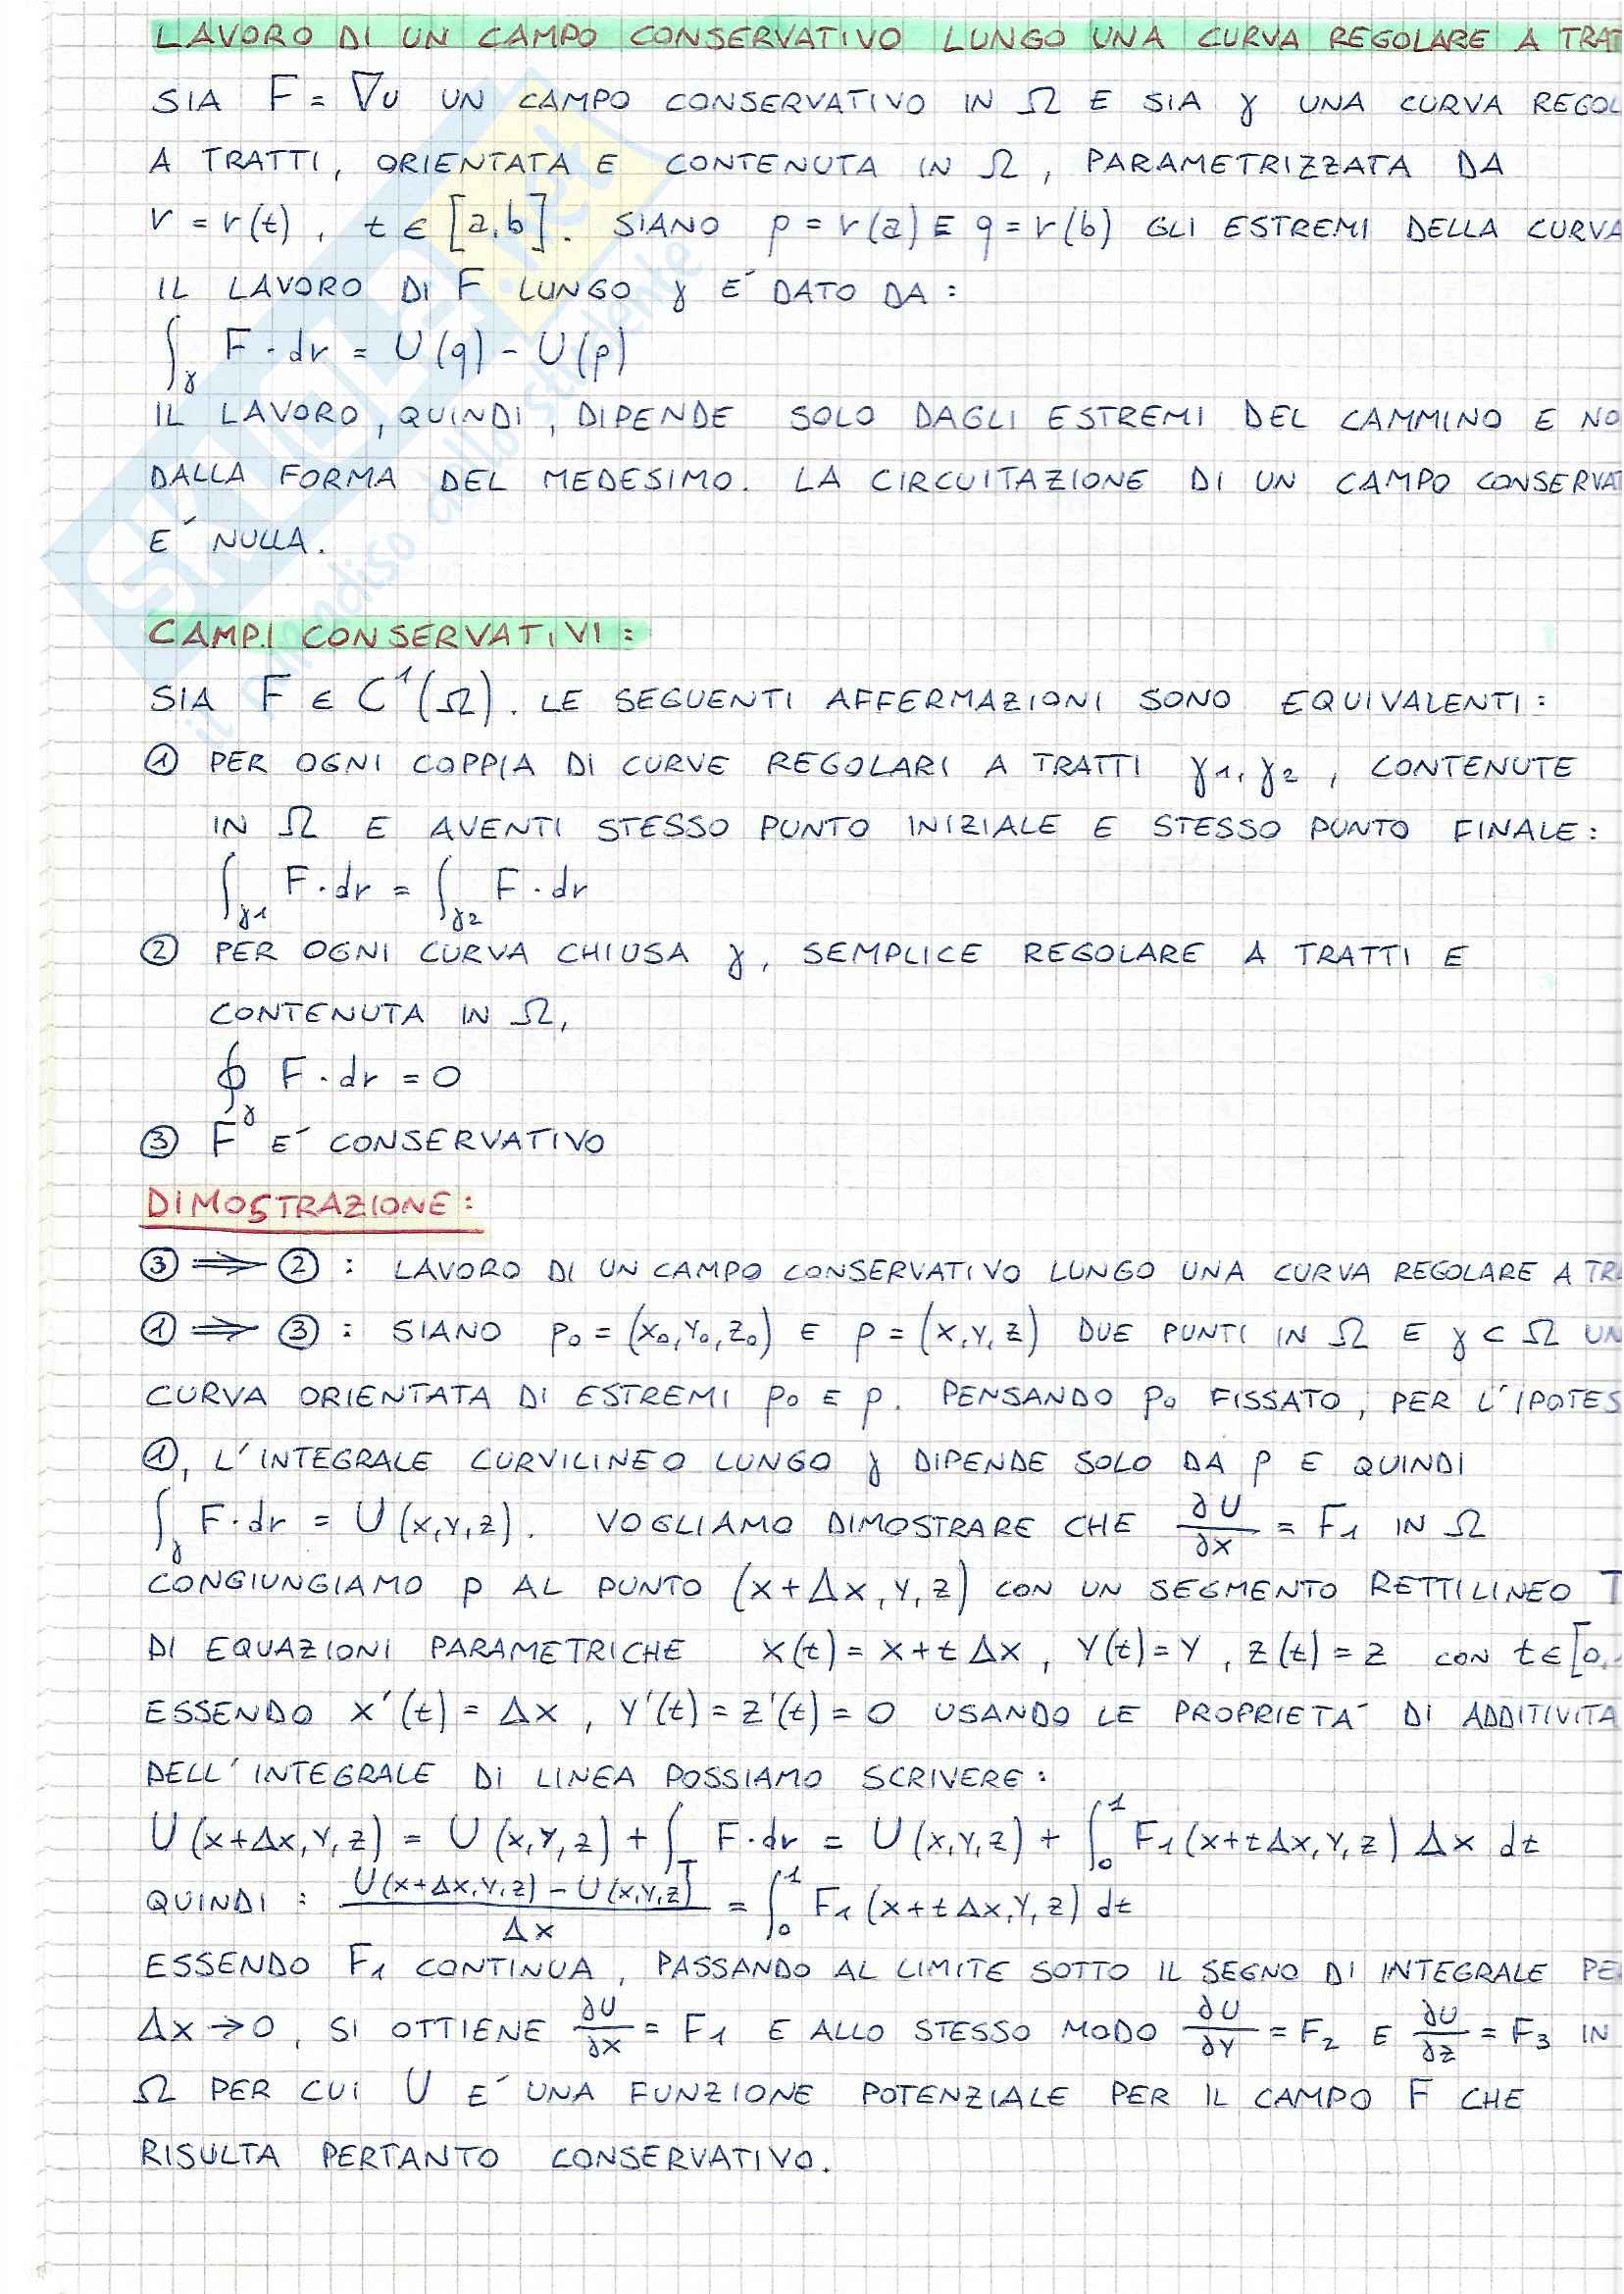 LAVORO DI UN CAMPO CONSERVATIVO LUNGO UNA CURVA REGOLARE A TRAT
SIA F = ∇U UN CAMPO CONSERVATIVO IN Ω E SIA γ UNA CURVA REGOL
A TRATTI, ORIENTATA E CONTENUTA IN Ω, PARAMETRIZZATA DA
r = r(t), t ∈ [a,b]. SIANO p = r(a) E q = r(b) GLI ESTREMI DELLA CURVA
IL LAVORO DI F LUNGO γ E' DATO DA:
∫γ F·dr = U(q) - U(p)
IL LAVORO, QUINDI, DIPENDE SOLO DAGLI ESTREMI DEL CAMMINO E NO
DALLA FORMA DEL MEDESIMO. LA CIRCUITAZIONE DI UN CAMPO CONSERVAT
E' NULLA.
CAMPI CONSERVATIVI:
SIA F ∈ C¹(Ω). LE SEGUENTI AFFERMAZIONI SONO EQUIVALENTI:
① PER OGNI COPPIA DI CURVE REGOLARI A TRATTI γ1, γ2, CONTENUTE
IN Ω E AVENTI STESSO PUNTO INIZIALE E STESSO PUNTO FINALE:
∫γ1 F·dr = ∫γ2 F·dr
② PER OGNI CURVA CHIUSA γ, SEMPLICE REGOLARE A TRATTI E
CONTENUTA IN Ω,
∮γ F·dr = 0
③ F E' CONSERVATIVO
DIMOSTRAZIONE:
③ ⟹ ② : LAVORO DI UN CAMPO CONSERVATIVO LUNGO UNA CURVA REGOLARE A TRA
① ⟹ ③ : SIANO p₀ = (x₀,y₀,z₀) E p = (x,y,z) DUE PUNTI IN Ω E γ ⊂ Ω UN
CURVA ORIENTATA DI ESTREMI p₀ E p. PENSANDO p₀ FISSATO, PER L'IPOTES
①, L'INTEGRALE CURVILINEO LUNGO γ DIPENDE SOLO DA p E QUINDI
∫γ F·dr = U(x,y,z). VOGLIAMO DIMOSTRARE CHE ∂U/∂x = F₁ IN Ω
CONGIUNGIAMO p AL PUNTO (x+Δx, y, z) CON UN SEGMENTO RETTILINEO T
DI EQUAZIONI PARAMETRICHE x(t) = x+tΔx, y(t) = y, z(t) = z CON t ∈ [0,
ESSENDO x'(t) = Δx, y'(t) = z'(t) = 0 USANDO LE PROPRIETA' DI ADDITIVITA
DELL'INTEGRALE DI LINEA POSSIAMO SCRIVERE:
U(x+Δx,y,z) = U(x,y,z) + ∫T F·dr = U(x,y,z) + ∫₀¹ F₁(x+tΔx,y,z) Δx dt
QUINDI : U(x+Δx,y,z) - U(x,y,z) / Δx = ∫₀¹ F₁(x+tΔx,y,z) dt
ESSENDO F₁ CONTINUA, PASSANDO AL LIMITE SOTTO IL SEGNO DI INTEGRALE PE
Δx → 0, SI OTTIENE ∂U/∂x = F₁ E ALLO STESSO MODO ∂U/∂y = F₂ E ∂U/∂z = F₃ IN
Ω PER CUI U E' UNA FUNZIONE POTENZIALE PER IL CAMPO F CHE
RISULTA PERTANTO CONSERVATIVO.